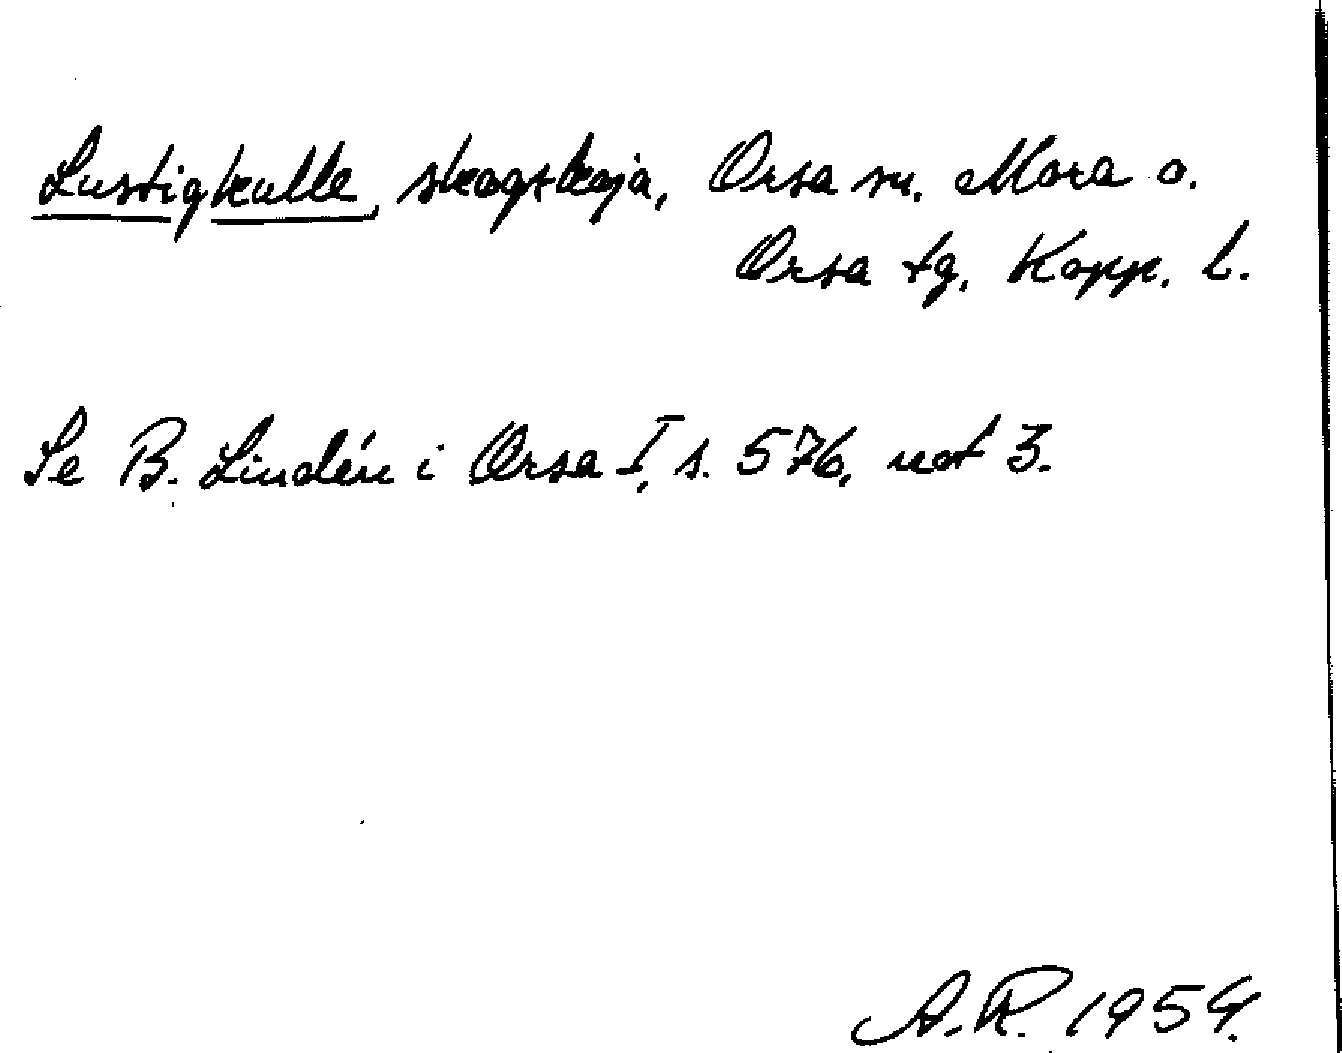 Lustigkulle, skogskoja, Orsa sn. Mora o.
Orsa tg. Kopp. l.
Se B. Lindén i Orsa I, s. 576, not 3.
A.R. 1954.